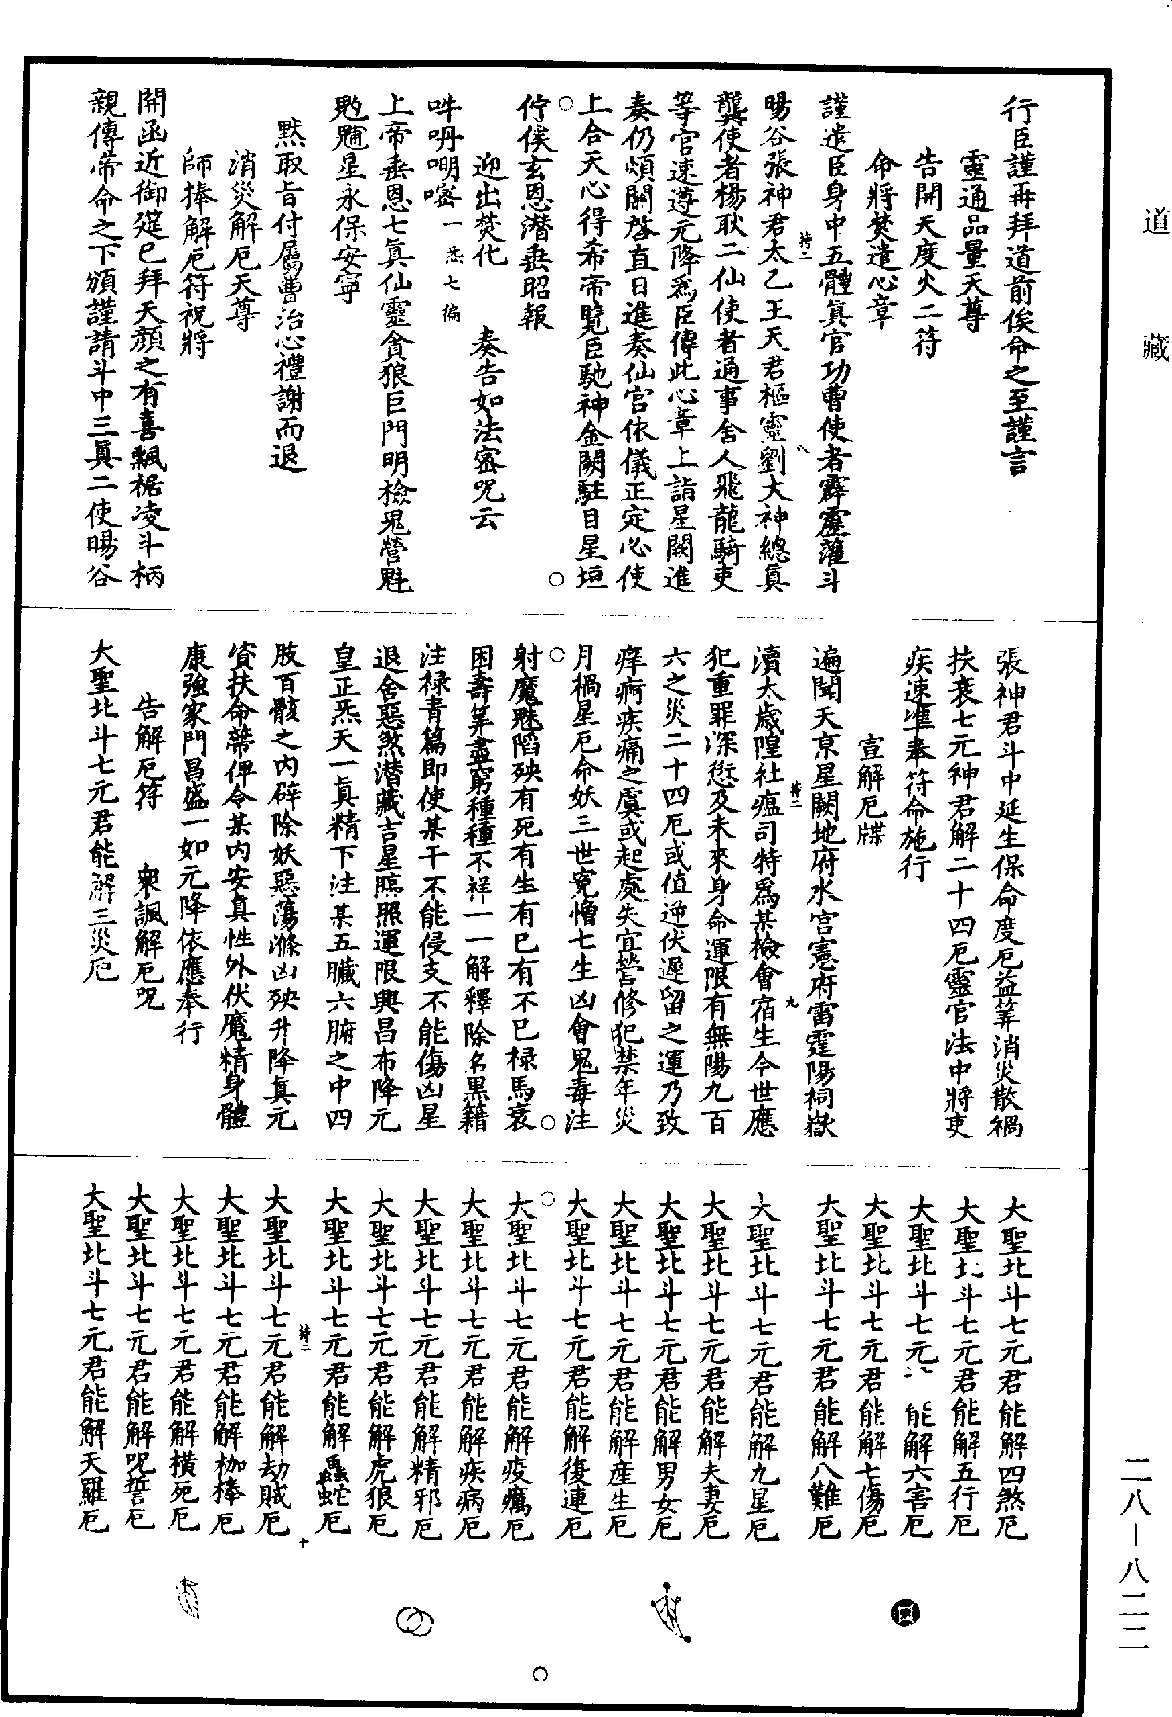 道藏
行臣謹再拜道前俟命之至謹言
靈通品量天尊
告開天度火二符
命將焚遣心章
謹遣臣身中五體真官功曹使者霹靂灌斗
暘谷張神君太乙王天君樞靈劉大神總真
龔使者楊耿二仙使者通事舍人飛龍騎吏
等官速遵元降為臣傳此心章上詣星闕進
奏仍煩關啓直日進奏仙官依儀正定心使
上合天心得希帝覽臣馳神金闕駐目星垣
佇俟玄恩潛垂昭報
迎出焚化 奏告如法密呪云
吽呬嘲嚓一炁七徧
上帝垂恩七真仙靈貪狼巨門明檢鬼營魁
魒魓星永保安寧
默取旨付屬曹治心禮謝而退
消災解厄天尊
師捧解厄符祝將
開函近御筵已拜天顏之有喜飄裾凌斗柄
親傳帝命之下頒謹請斗中三真二使暘谷
張神君斗中延生保命度厄益筭消災散禍
扶衰七元神君解二十四厄靈官法中將吏
疾速準奉符命施行
宣解厄牒
遍聞天京星闕地府水宮憲府雷霆陽祠嶽
瀆太歲隍社瘟司特為某檢會宿生今世應
犯重罪深愆及未來身命運限有無陽九百
六之災二十四厄或值逆伏遲留之運乃致
痒痾疾痛之虞或起處失宜營修犯禁年災
月禍星厄命妖三世冤憎七生凶會鬼毒注
射魔魅陷殃有死有生有已有不已祿馬衰
困壽筭盡窮種種不祥一一解釋除名黑籍
注祿青篇即使某干不能侵支不能傷凶星
退舍惡煞潛藏吉星臨照運限興昌布降元
皇正炁天一真精下注某五臟六腑之中四
肢百骸之內辟除妖惡蕩滌凶殃升降真元
資扶命蒂俾令某內安真性外伏魔精身體
康強家門昌盛一如元降依應奉行
告解厄符 衆諷解厄呪
大聖北斗七元君能解三災厄
大聖北斗七元君能解四煞厄
大聖北斗七元君能解五行厄
大聖北斗七元 能解六害厄
大聖北斗七元君能解七傷厄
大聖北斗七元君能解八難厄
大聖北斗七元君能解九星厄
大聖北斗七元君能解夫妻厄
大聖北斗七元君能解男女厄
大聖北斗七元君能解產生厄
大聖北斗七元君能解復連厄
大聖北斗七元君能解疫癘厄
大聖北斗七元君能解疾病厄
大聖北斗七元君能解精邪厄
大聖北斗七元君能解虎狼厄
大聖北斗七元君能解蟲蛇厄
大聖北斗七元君能解劫賊厄
大聖北斗七元君能解枷棒厄
大聖北斗七元君能解橫死厄
大聖北斗七元君能解呪誓厄
大聖北斗七元君能解天羅厄
二八-八二二